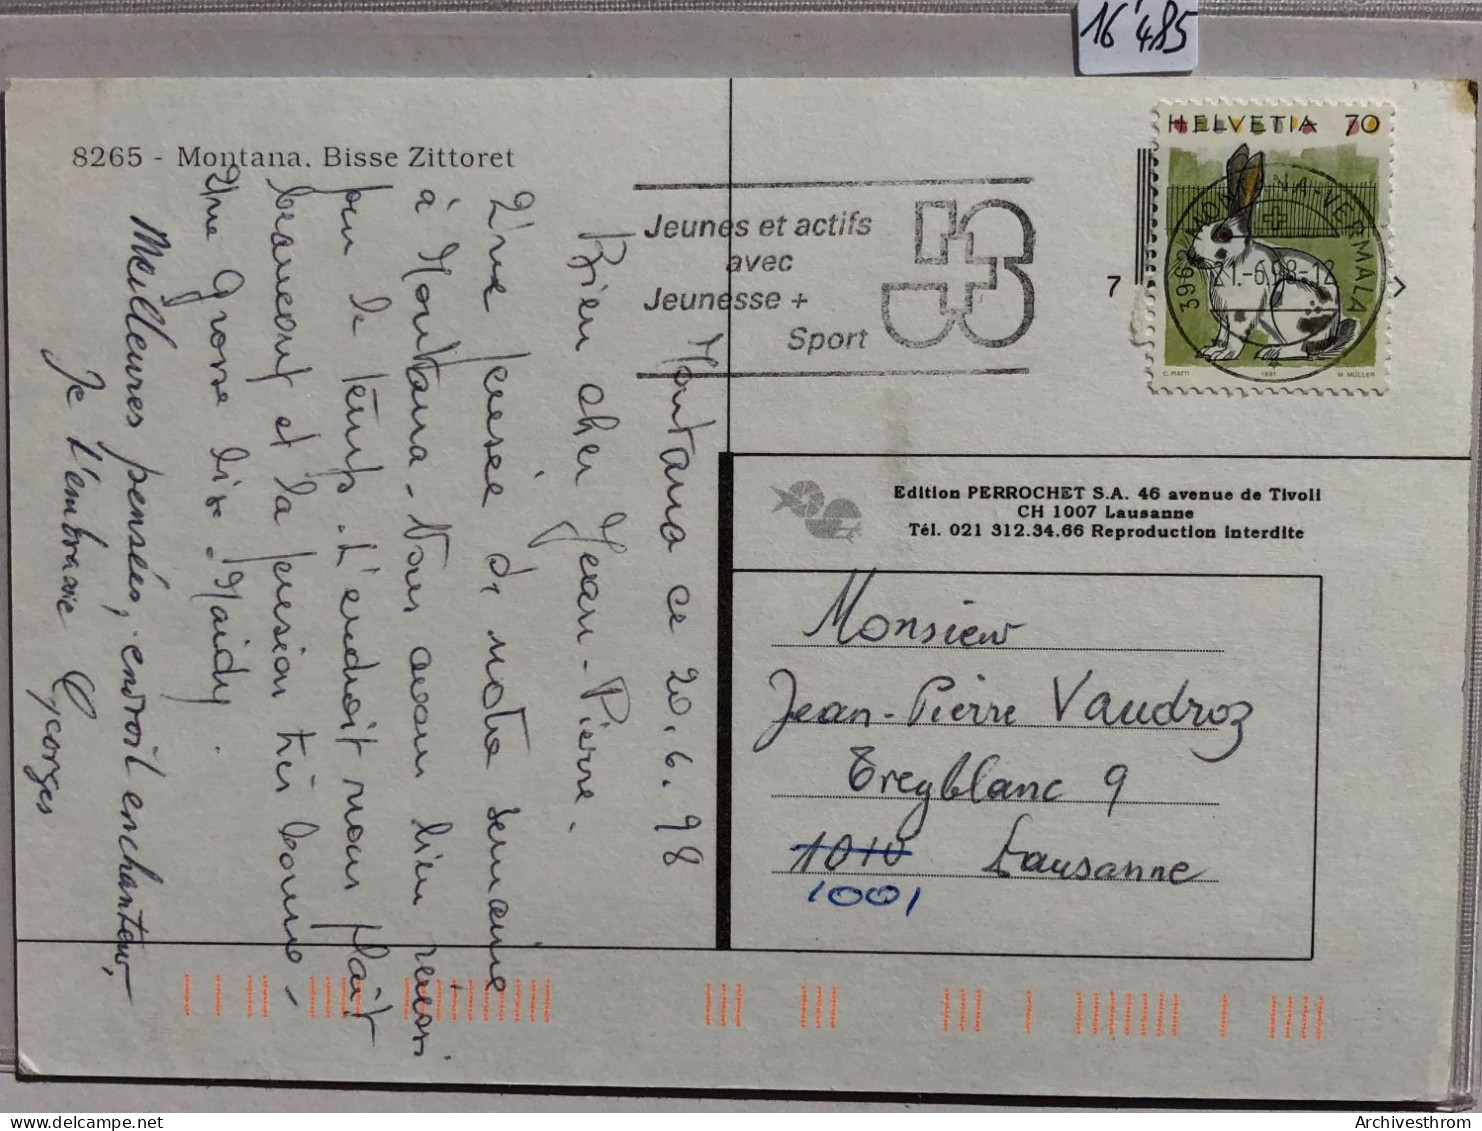 16'485
8265 - Montana. Bisse Zittoret
Jeunes et actifs
avec
Jeunesse +
Sport
7
HELVETIA 70
3962 MONTANA-VERMALA
21.-6.98-12
C. PIATTI 1991 M. MÜLLER
Edition PERROCHET S.A. 46 avenue de Tivoli
CH 1007 Lausanne
Tél. 021 312.34.66 Reproduction interdite
Monsieur
Jean-Pierre Vaudroz
Treyblanc 9
1010 Lausanne
1001
Montana ce 20.6.98
Bien cher Jean-Pierre.
Une pensée de notre semaine
à Montana. Nous avons bien réussi
pour le temps. L'endroit nous plait
beaucoup et la pension très bonne.
Une grosse bise. Maidy.
Meilleures pensées, endroit enchanteur,
Je t'embrasse Georges
Archivesthrom